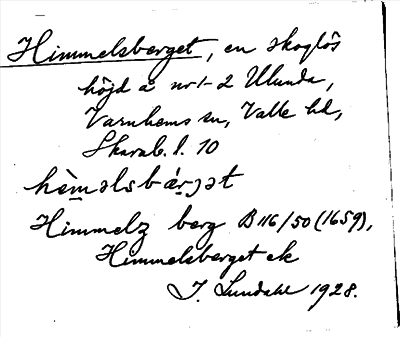 Himmelsberget, en skoglös
höjd å nr 1-2 Ulunda,
Varnhems sn, Valle hd,
Skarab. l. 10
hèm̲əlsbár̲ɟət
Himmelz berg B 116/50 (1659),
Himmelsberget ek
I. Lundahl 1928.